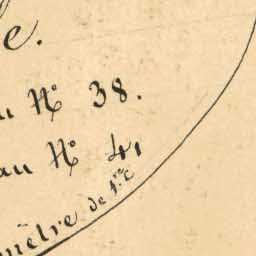 e.
au N° 38.
au N° 41
mètre de 1re c